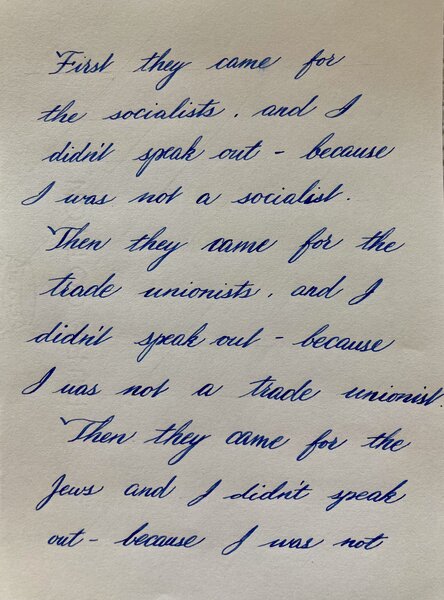 First they came for
the socialists, and I
didn't speak out - because
I was not a socialist.
Then they came for the
trade unionists, and I
didn't speak out - because
I was not a trade unionist
Then they came for the
Jews and I didn't speak
out - because I was not